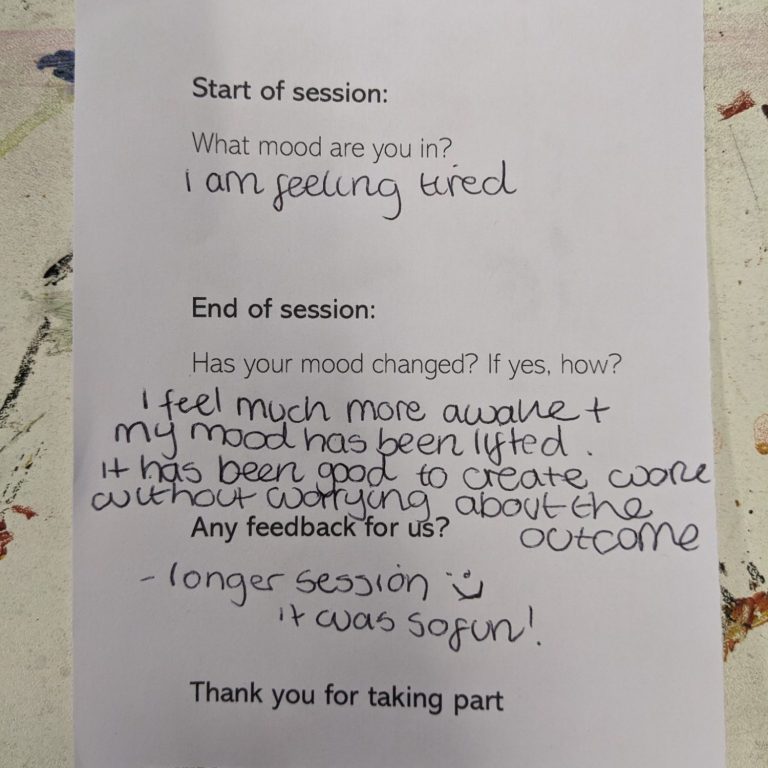 Start of session:
What mood are you in?
i am feeling tired
End of session:
Has your mood changed? If yes, how?
i feel much more awake +
my mood has been lifted.
it has been good to create work
without worrying about the
outcome
Any feedback for us?
- longer session :)
it was so fun!
Thank you for taking part